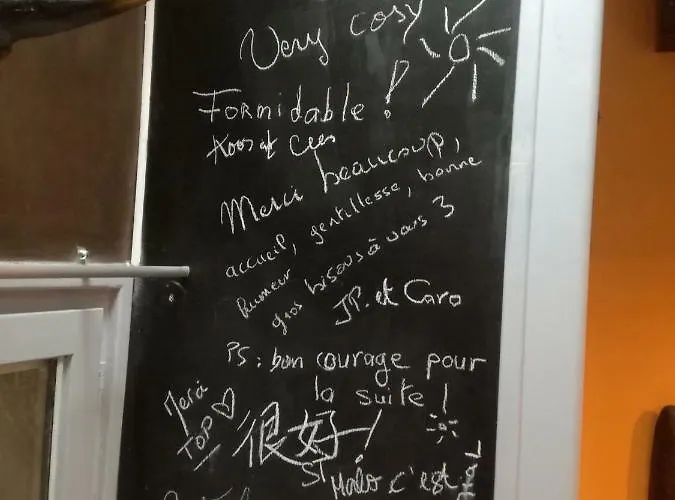 Very cosy
Formidable !
Merci beaucoup,
accueil, gentillesse, bonne
humeur
gros bisous à vous 3
JP. et Caro
PS : bon courage pour
la suite !
TOP
很好!
ST Malo c'est